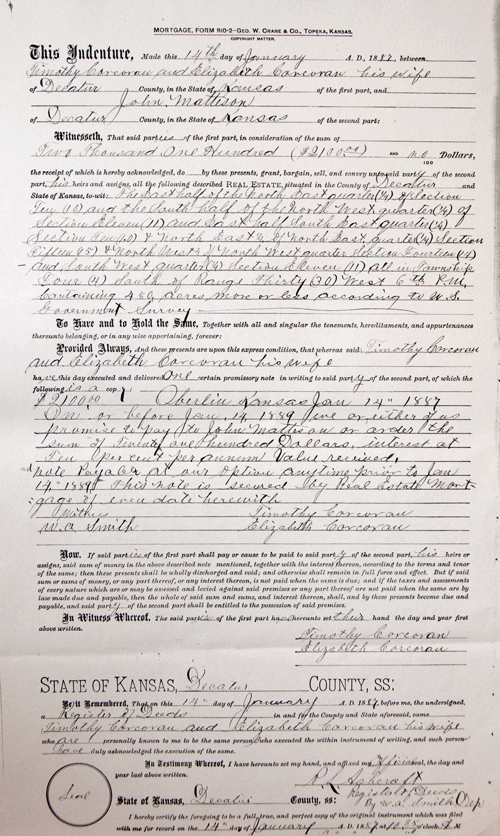 MORTGAGE, FORM 910-2—GEO. W. CRANE & CO., TOPEKA, KANSAS.
COPYRIGHT MATTER.
This Indenture, Made this 14th day of January A. D. 1887, between
Timothy Corcoran and Elizabeth Corcoran his wife
of Decatur County, in the State of Kansas of the first part, and
John Mattison
of Decatur County, in the State of Kansas of the second part:
Witnesseth, That said parties of the first part, in consideration of the sum of
Two Thousand One Hundred ($2100.00) AND no/100 Dollars,
the receipt of which is hereby acknowledged, do by these presents, grant, bargain, sell, and convey unto said party of the second
part, his heirs and assigns, all the following described REAL ESTATE, situated in the County of Decatur and
State of Kansas, to-wit: The East half of the North East quarter (¼) of Section
Ten (10) and the South half of the North West quarter (¼) of
Section Eleven (11) and East half South East quarter (¼)
Section Ten (10) & North East ¼ of North East quarter (¼) Section
Fifteen (15) & North West ¼ North West quarter Section Fourteen (14)
and South West quarter (¼) Section Eleven (11) all in Township
Four (4) South of Range Thirty (30) West 6th P.M.
Containing 480 acres, more or less according to U.S.
Government Survey
To Have and to Hold the Same, Together with all and singular the tenements, hereditaments, and appurtenances
thereunto belonging, or in any wise appertaining, forever:
Provided Always, And these presents are upon this express condition, that whereas said Timothy Corcoran
and Elizabeth Corcoran his wife
have this day executed and delivered one certain promissory note in writing to said party of the second part, of which the
following is a copy:
$2100.00 Oberlin Kansas Jan 14" 1887
On or before Jan 14 1889 we or either of us
promise to pay to John Mattison or order the
sum of Twenty one hundred Dollars, interest at
Ten per cent per annum Value received,
note Payable at our option anytime prior to Jan
14" 1889 This note is secured by Real Estate Mort-
gage of even date herewith
Witness Timothy Corcoran
W.A. Smith Elizabeth Corcoran
Now, If said parties of the first part shall pay or cause to be paid to said party of the second part, his heirs or
assigns, said sum of money in the above described note mentioned, together with the interest thereon, according to the terms and tenor
of the same; then these presents shall be wholly discharged and void; and otherwise shall remain in full force and effect. But if said
sum or sums of money, or any part thereof, or any interest thereon, is not paid when the same is due; and if the taxes and assessments
of every nature which are or may be assessed and levied against said premises or any part thereof are not paid when the same are by
law made due and payable, then the whole of said sum and sums, and interest thereon, shall, and by these presents become due and
payable, and said party of the second part shall be entitled to the possession of said premises.
In Witness Whereof, The said parties of the first part have hereunto set their hand the day and year first
above written.
Timothy Corcoran
Elizabeth Corcoran
STATE OF KANSAS, Decatur COUNTY, SS:
Be it Remembered, That on this 14" day of January A. D. 1887 before me, the undersigned,
a Register of Deeds in and for the County and State aforesaid, came
Timothy Corcoran and Elizabeth Corcoran his wife
who are personally known to me to be the same person who executed the within instrument of writing, and such person
have duly acknowledged the execution of the same.
In Testimony Whereof, I have hereunto set my hand, and affixed my official seal, the day and
year last above written.
R. Ashcraft
Register of Deeds
Seal
State of Kansas, Decatur County, ss: By W.A. Smith Dep
I hereby certify the foregoing to be a full, true, and perfect copy of the original instrument which was filed
with me for record on the 14" day of January A. D. 1887